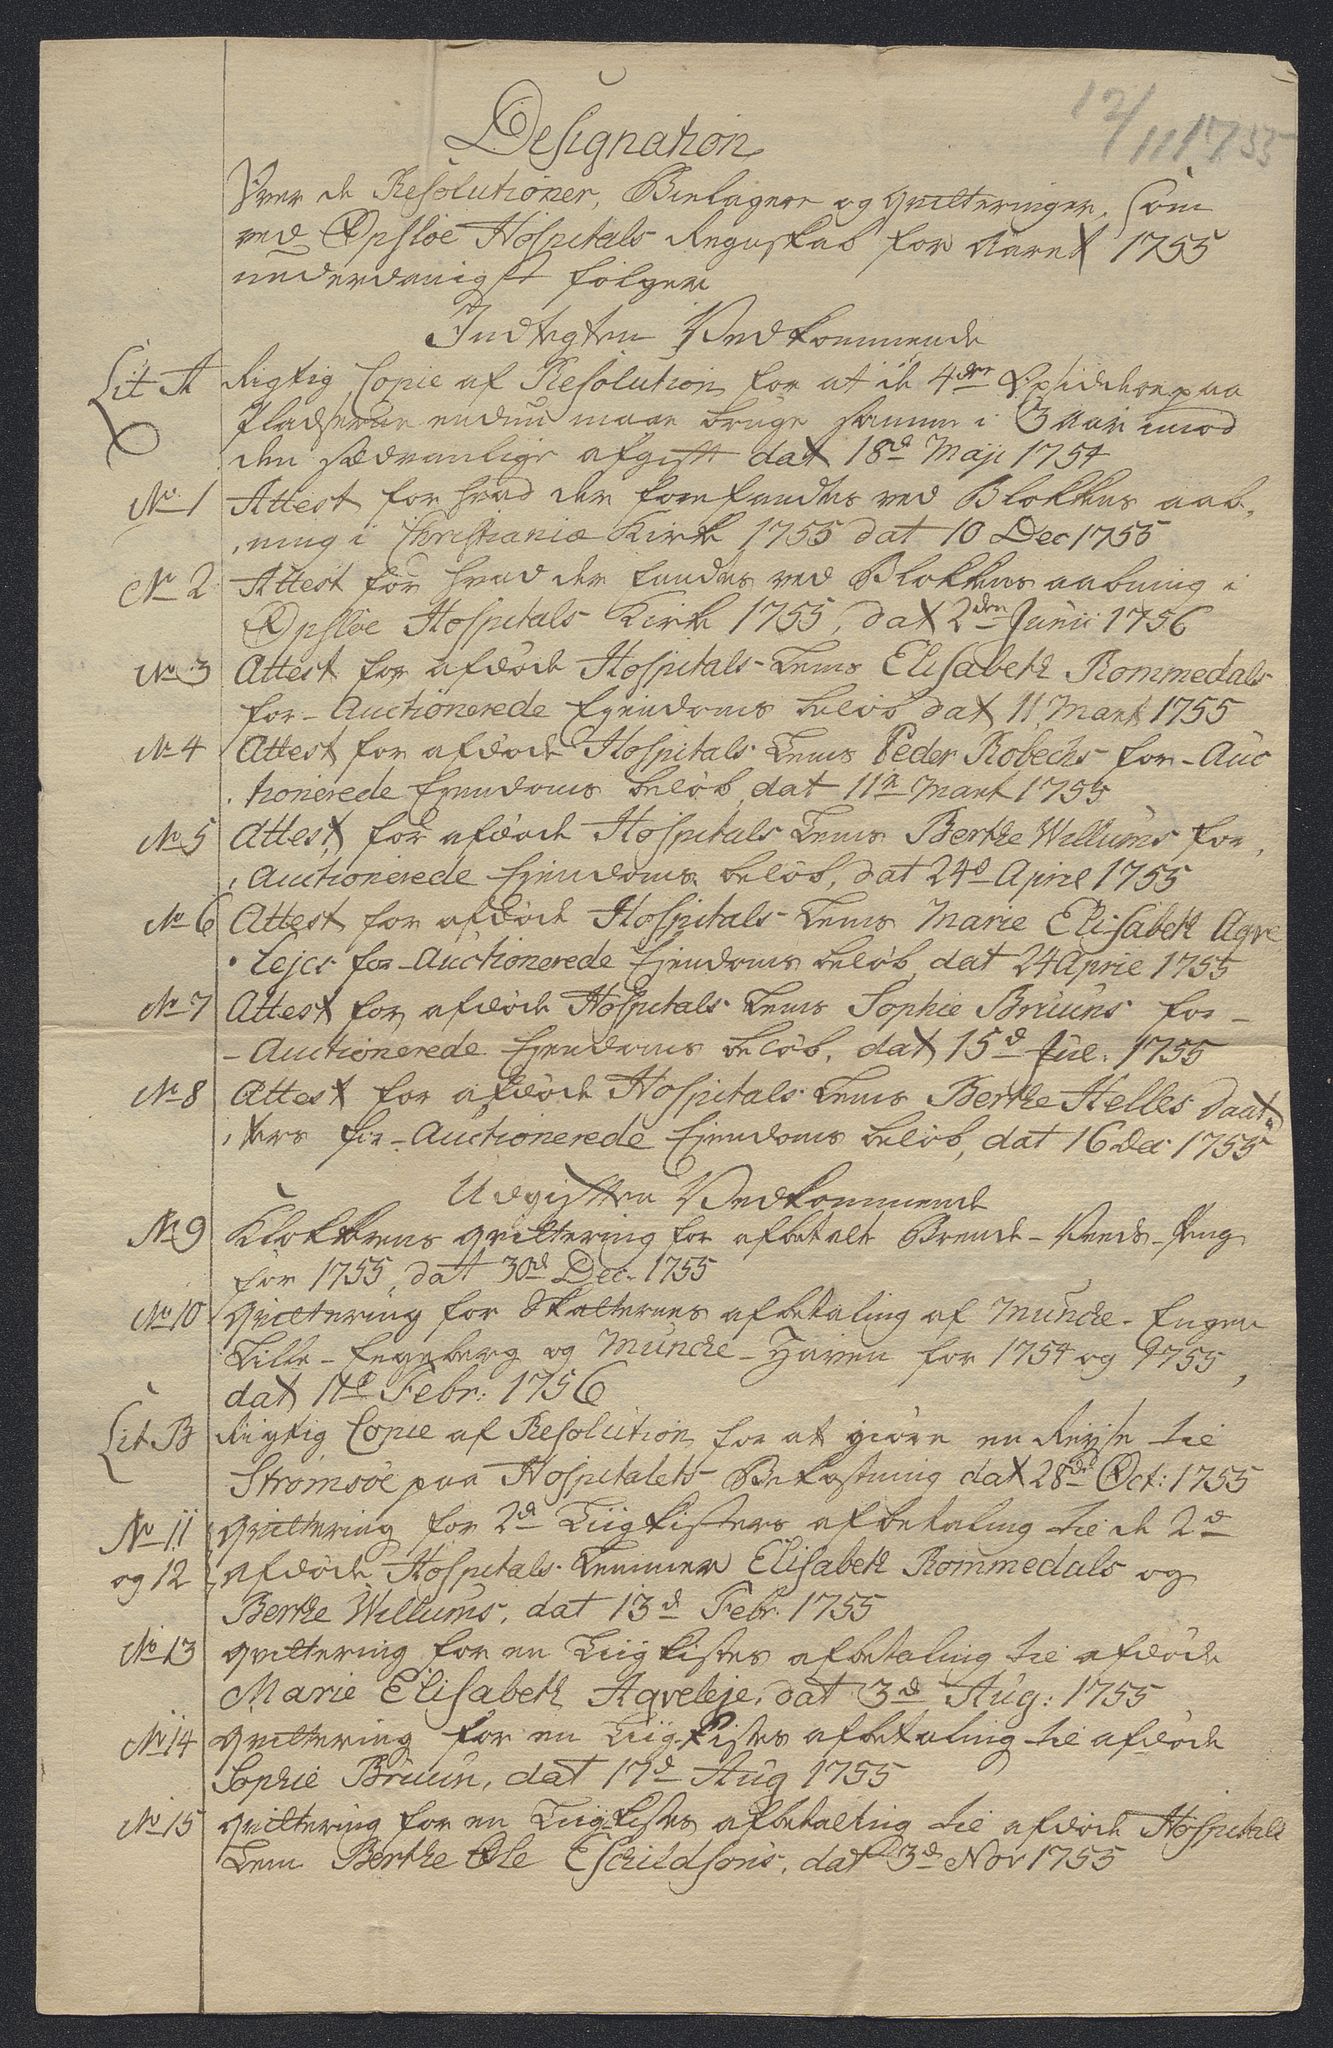 12/11 1755
Designation
Over de Resolutioner, Bielagere og qvitteringer, som
ved Opsloe Hospitals Regnskab for Aaret 1755
underdanigst følger
Indtegten Vedkommende
Lit A Rigtig Copie af Resolution for at de 4der Opsiddere paa
Pladserne endnu maae bruge samme i 3 aar imod
den sædvanlige afgift dat 18d Maji 1754
No 1 Attest for hvad der forefandtes ved Blokkens aab,
,ning i Christianiæ Kirke 1755 dat 10 Dec 1755
No 2 Attest for hvad der fandtes ved Blokkens aabning i
Opsloe Hospitals Kirke 1755, dat 2den Junii 1756
No 3 Attest for afdøde Hospitals-Lems Elisabeth Rommedals
for-Auctionerede Ejendoms beløb dat 11 Mart 1755
No 4 Attest for afdøde Hospitals Lems Peder Robechs for-Auc
,tionerede Ejendoms beløb, dat 11te Mart 1755
No 5 Attest for afdøde Hospitals Lems Berthe Willums for,
,Auctionerede Ejendoms beløb, dat 24d April 1755
No 6 Attest for afdøde Hospitals-Lems Marie Elisabeth Agve
lejes for-Auctionerede Ejendoms beløb, dat 24 April 1755
No 7 Attest for afdøde Hospitals Lems Sophie Bruuns for-
-Auctionerede Ejendoms beløb, dat 15d Jul. 1755
No 8 Attest for afdøde Hospitals Lems Berthe Helles daat,
,ters for-Auctionerede Ejendoms beløb, dat 16 Dec 1755
Udgiften Vedkommende
No 9 Klokkerens qvittering for afbetalt Brende-Veeds-Peng
for 1755, dat 30d Dec. 1755
No 10 qvittering for Skatternes afbetaling af Muncke-Engen
Lille-Eegeberg og Muncke-Haven for 1754 og 1755,
dat 11d Febr: 1756
Lit B Rigtig Copie af Resolution for at giøre en Reyse til
Strømsøe paa Hospitalets Bekostning dat 28de Oct: 1755
No 11 qvittering for 2d Liigkisters afbetaling til de 2d
og 12 afdøde Hospitals-Lemmer Elisabeth Rommedals og
Berthe Willums, dat 13d Febr. 1755
No 13 qvittering for en Liigkistes afbetaling til afdøde
Marie Elisabeth Agveleje, dat 3d Aug: 1755
No 14 qvittering for en Liigkistes afbetaling til afdøde
Sophie Bruun, dat 17d Aug 1755
No 15 qvittering for en Liigkistes afbetaling til afdøde Hospitals
Lem Berthe Ole Eschildsøns, dat 3d Nov 1755